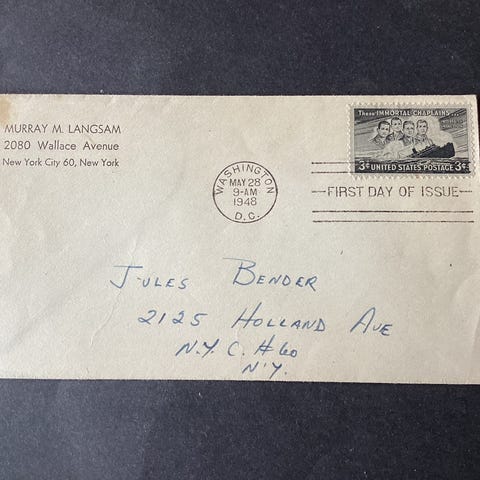 MURRAY M. LANGSAM
2080 Wallace Avenue
New York City 60, New York
These IMMORTAL CHAPLAINS...
3¢ UNITED STATES POSTAGE 3¢
WASHINGTON
MAY 28
9-AM
1948
D.C.
FIRST DAY OF ISSUE
JULES BENDER
2125 HOLLAND AVE
N.Y.C. #60
N.Y.